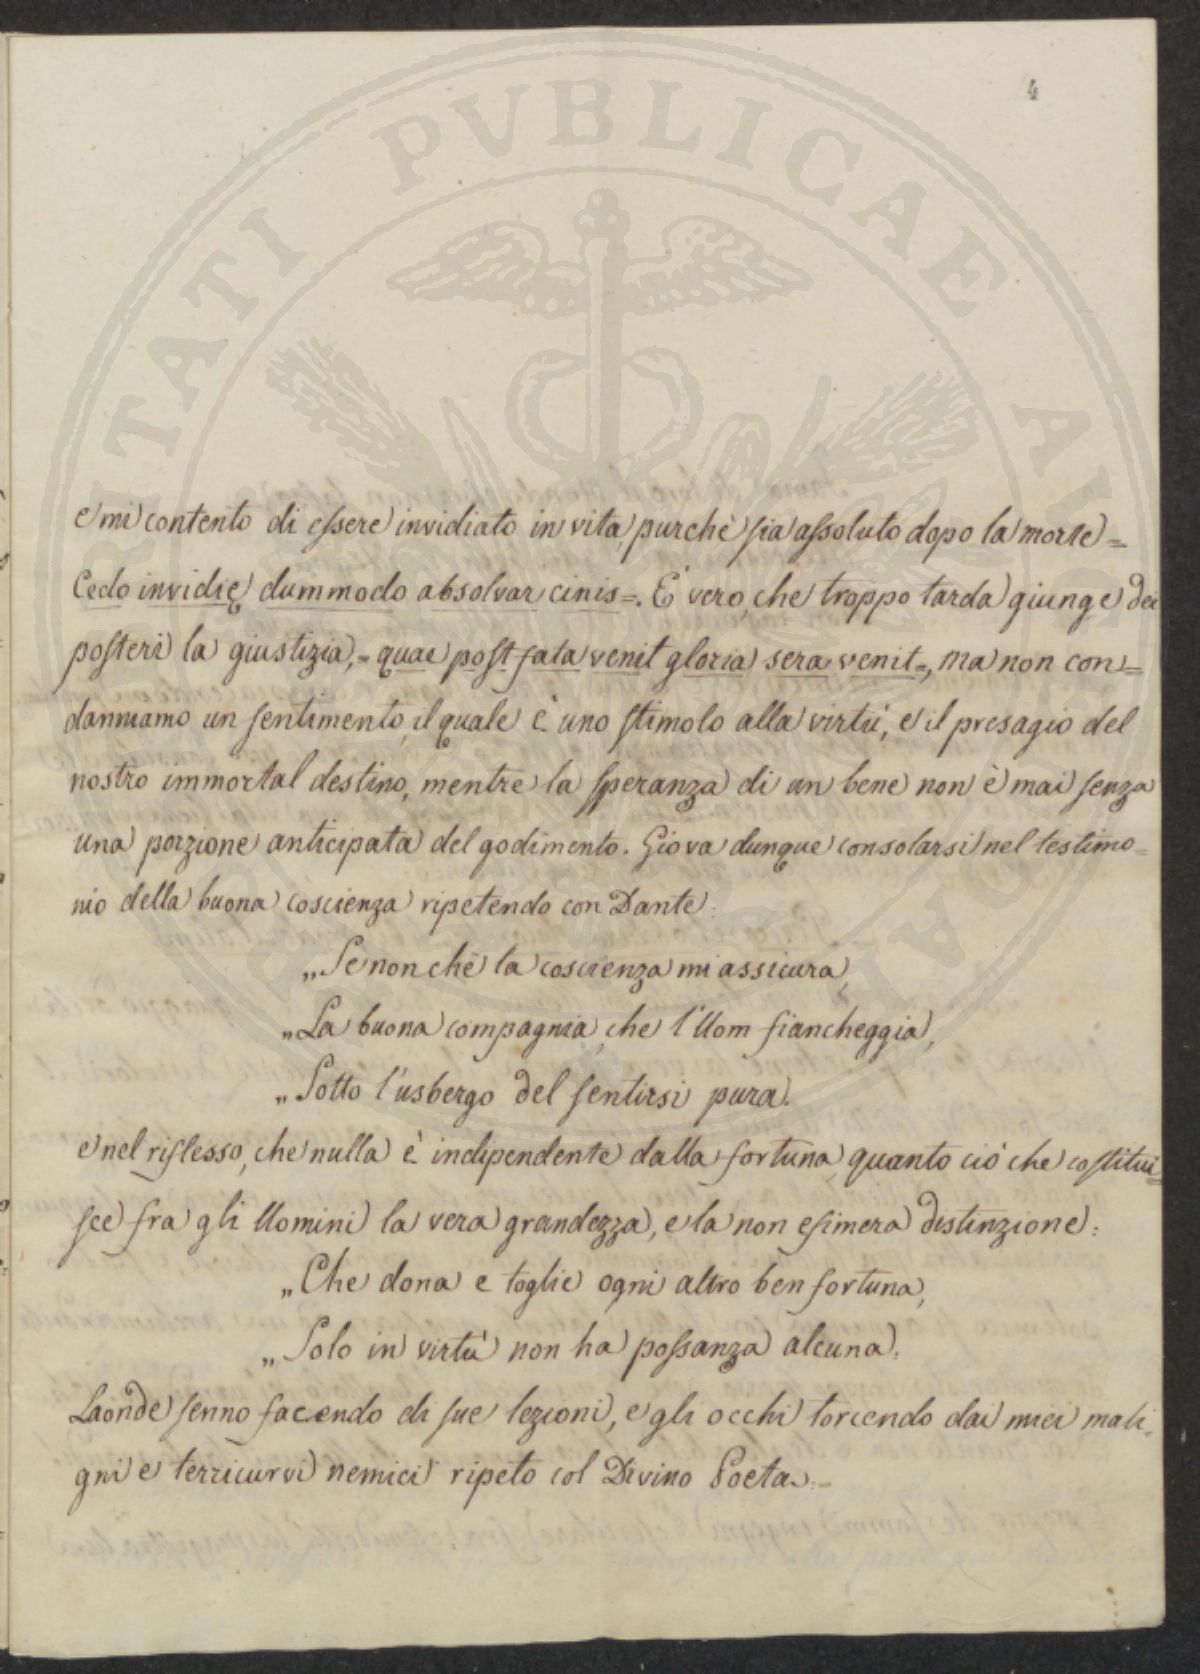 4
e mi contento di essere invidiato in vita, purchè sia assoluto dopo la morte =
Cedo invidię dummodo absolvar cinis =. È vero, che troppo tarda giunge dei
posteri la giustizia, = quae post fata venit gloria sera venit =, ma non con=
danniamo un sentimento, il quale è uno stimolo alla virtù, e il presagio del
nostro immortal destino, mentre la speranza di un bene non è mai senza
una porzione anticipata del godimento. Giova dunque consolarsi nel testimo=
nio della buona coscienza ripetendo con Dante:
„Se non chè la coscienza mi assicura,
„La buona compagnia, che l'Uom fiancheggia,
„Sotto l'usbergo del sentirsi pura.
e nel riflesso, che nulla è indipendente dalla fortuna, quanto ciò che costitui=
sce fra gli Uomini la vera grandezza, e la non efimera distinzione:
„Che dona e toglie ogni altro ben fortuna,
„Solo in virtù non ha possanza alcuna.
Laonde senno facendo di sue lezioni, e gli occhi torcendo dai miei mali=
gni e terricurvi nemici ripeto col Divino Poeta:=